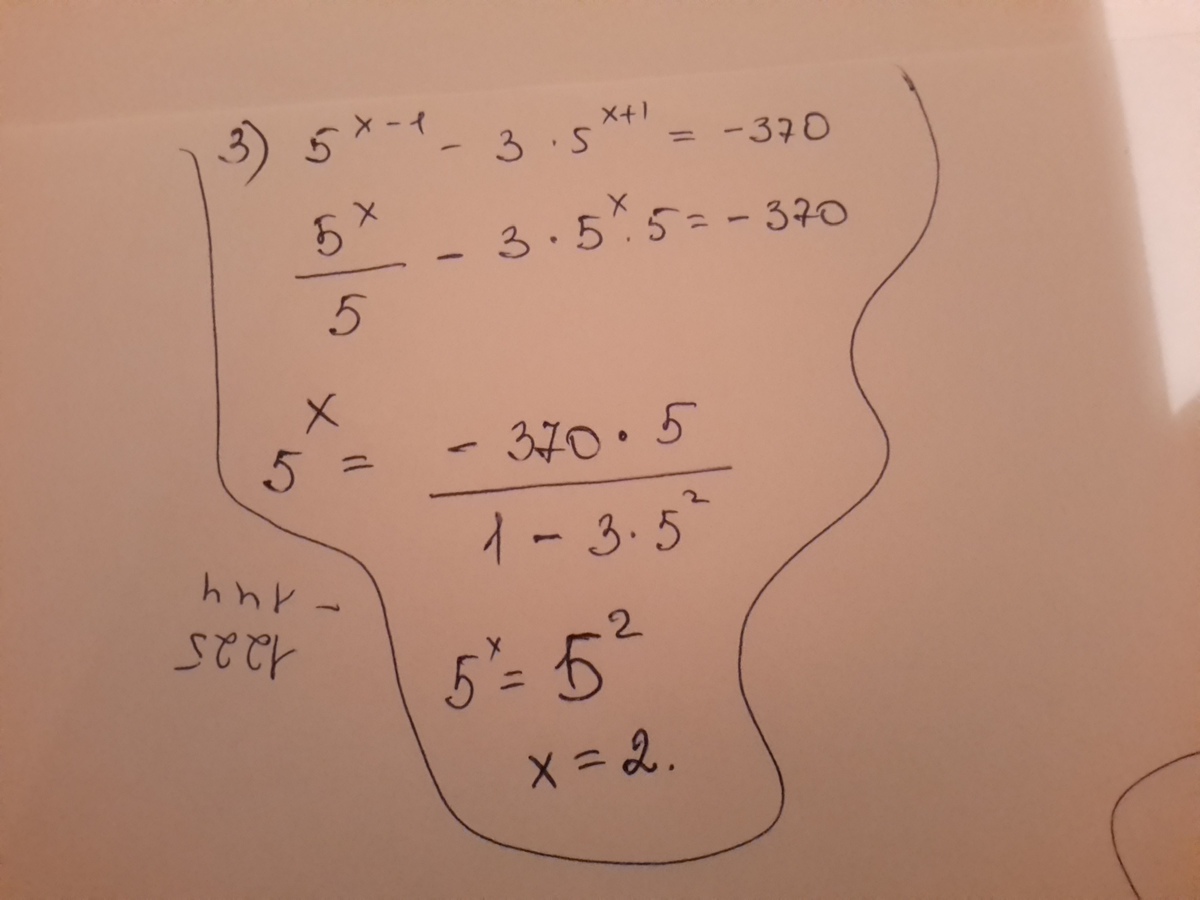 3) 5^(x-1) - 3 · 5^(x+1) = -370
5^x/5 - 3 · 5^x · 5 = -370
5^x = (-370 · 5)/(1 - 3 · 5^2)
5^x = 5^2
x = 2.
1225
- 144